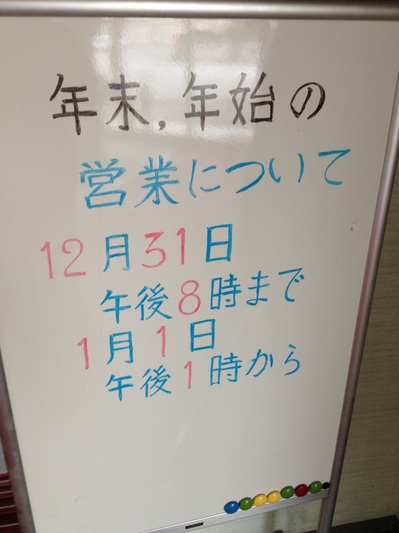 年末,年始の
営業について
12月31日
午後8時まで
1月1日
午後1時から